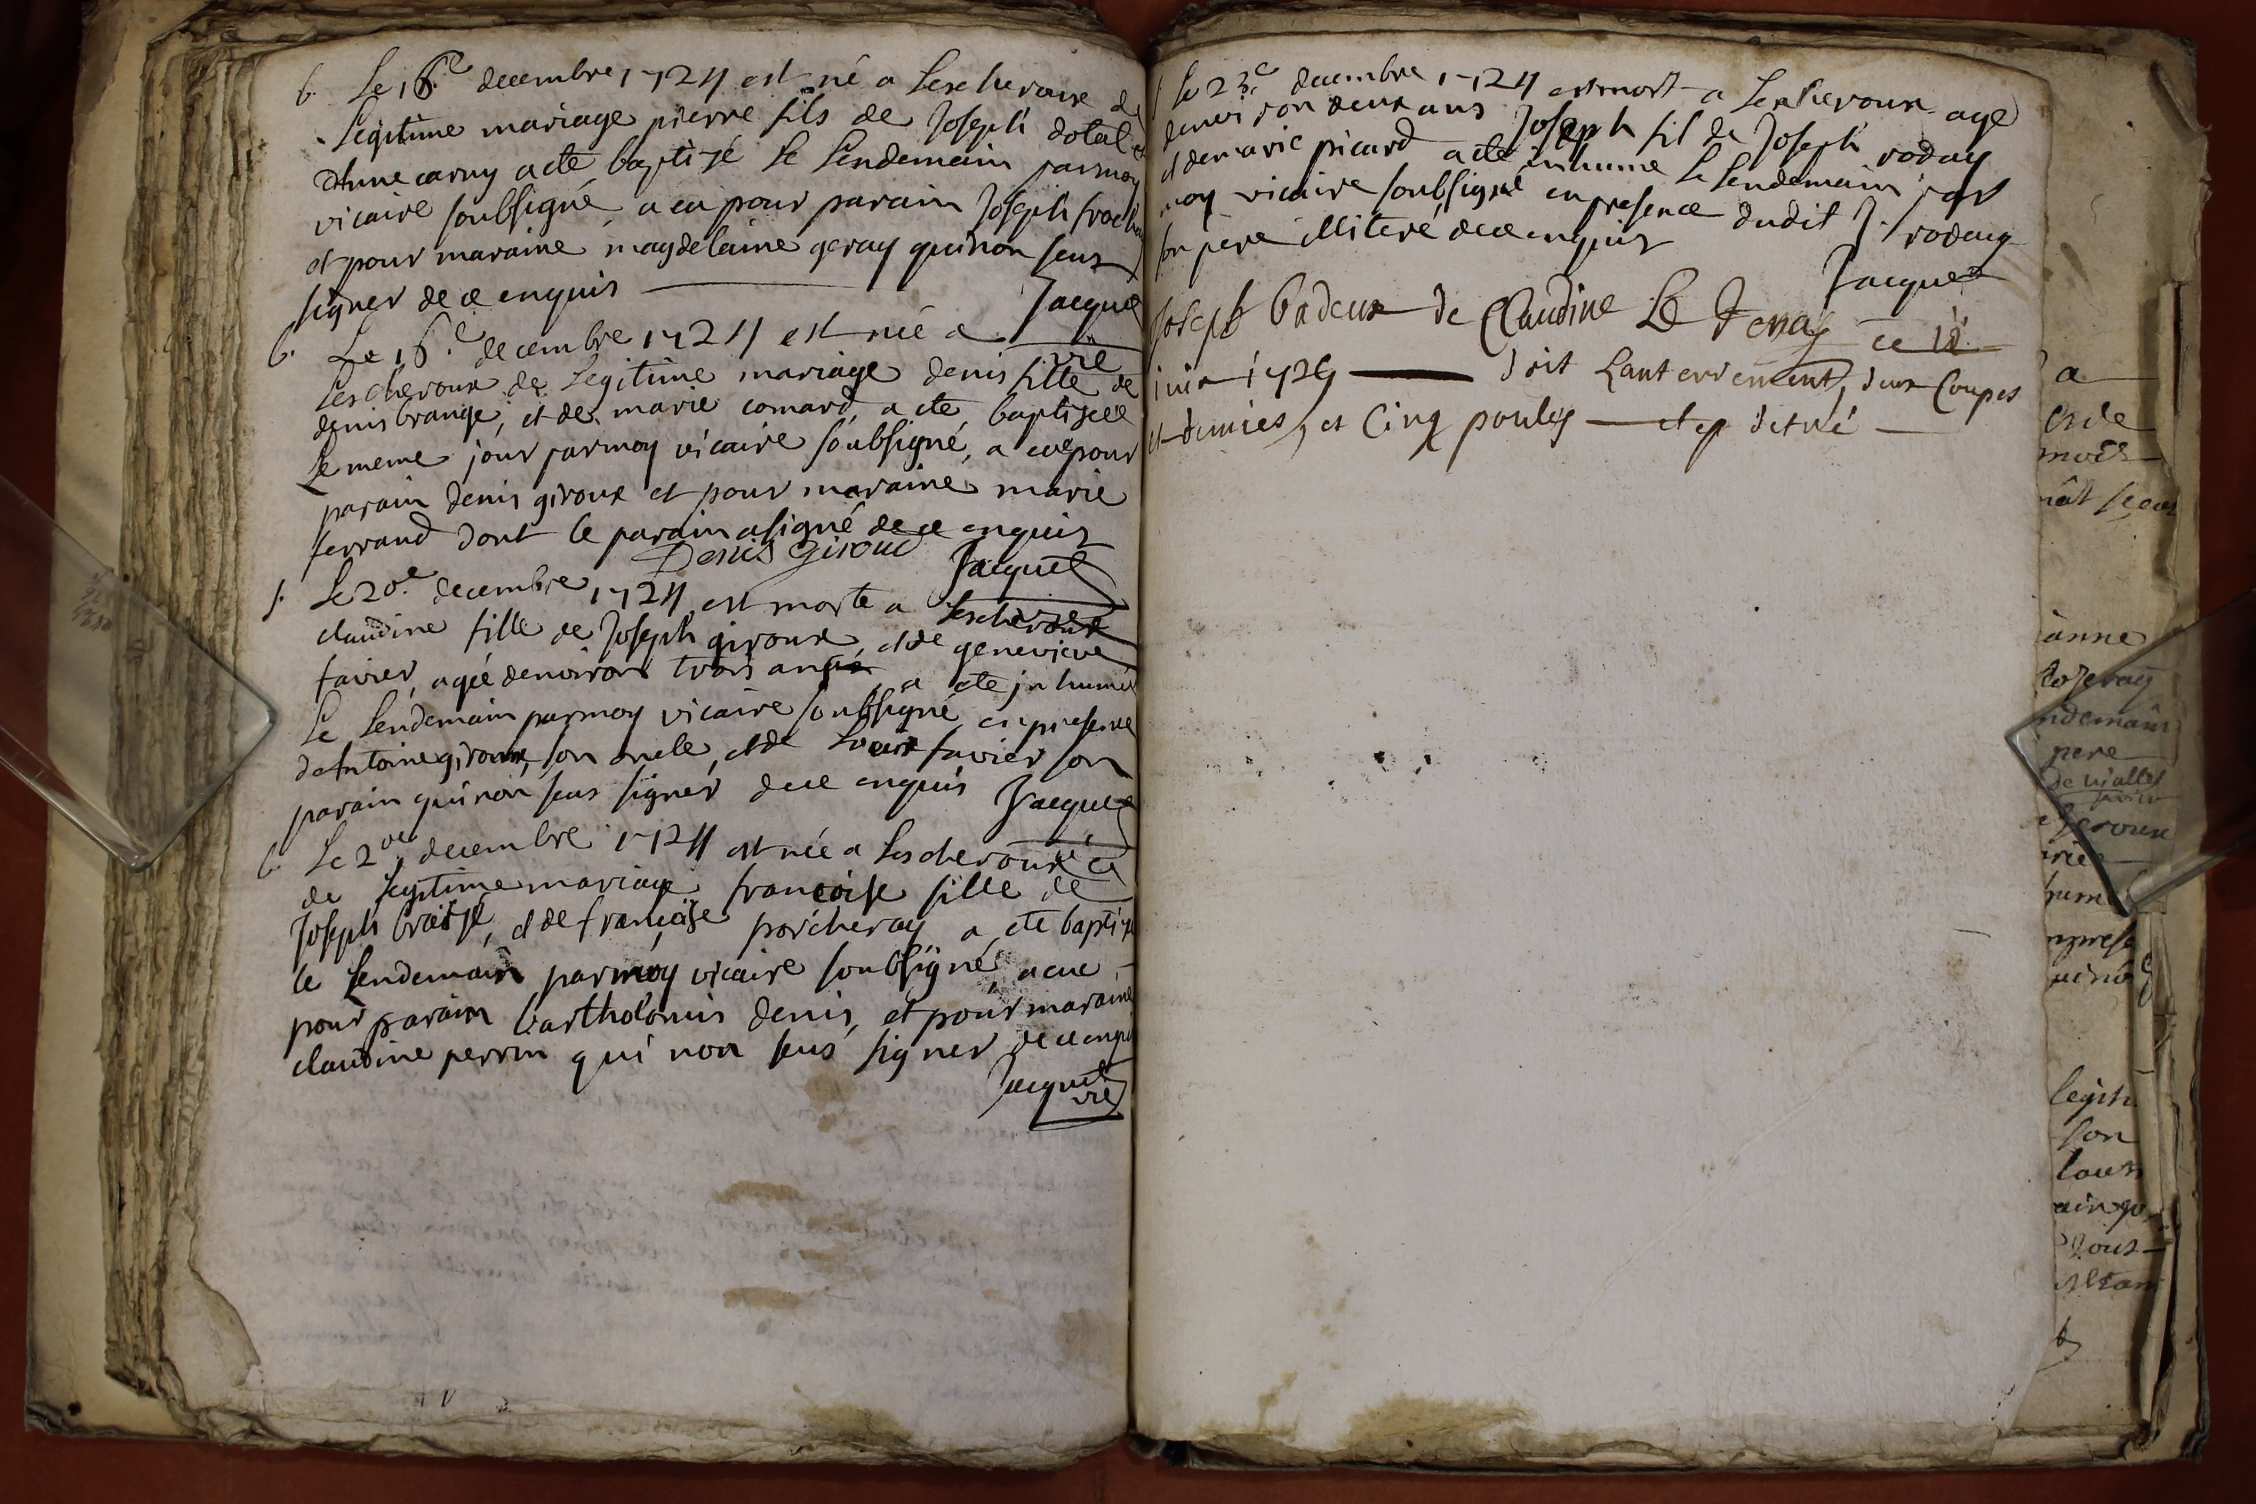 b. Le 16.e decembre 1724 est né a Lescheroux de
Legitime mariage pierre fils de Joseph dotal et
d'anne carny a eté baptizé le Lendemain parmoy
vicaire soubsigné, a eu pour parain Joseph
et pour maraine magdelaine geray qui non seus
signer de ce enquis Jacquet
b. Le 16.e decembre 1724 est née a vic
Lescheroux de Legitime mariage denis fille de
denis brange, et de marie comard, a eté baptizée
Le meme jour parmoy vicaire soubsigné, a eue pour
parain denis giroux et pour maraine marie
ferrand dont le parain a signé de ce enquis
Denis Giroud Jacquet
s. Le 20.e decembre 1724 est morte a Lescheroux
claudine fille de Joseph giroux, et de genevieve
favier, agée denviron trois a eté inhumée
Le Lendemain parmoy vicaire soubsigné en presence
d'Antoine giroux, son oncle, et de Louis favier son
parain qui non seus signer de ce enquis Jacquet
b. Le 20e decembre 1724 est née a Lescheroux
de Legitime mariage francoise fille de
Joseph et de françoise porcheray a eté baptizé
le Lendemain parmoy vicaire soubsigné, a eue
pour parain bartholomis denis, et pour maraine
claudine perrin qui non seus signer de ce enquis
Jacquet
vic
s Le 23.e decembre 1724 est mort a Lescheroux age
denviron deux ans Joseph fil de Joseph roday
et de marie picard a eté inhumé Le Lendemain par
moy vicaire soubsigné en presence dudit J. roday
son pere illiteré de ce enquis Jacquet
Joseph badoux de Claudine Le ce 18
1729 doit Lanterrement, deux Coupes
et demies, et Cinq poules
a
et de
anne
ndemain
pere
de viallet
favier
cheroux
legiti
son